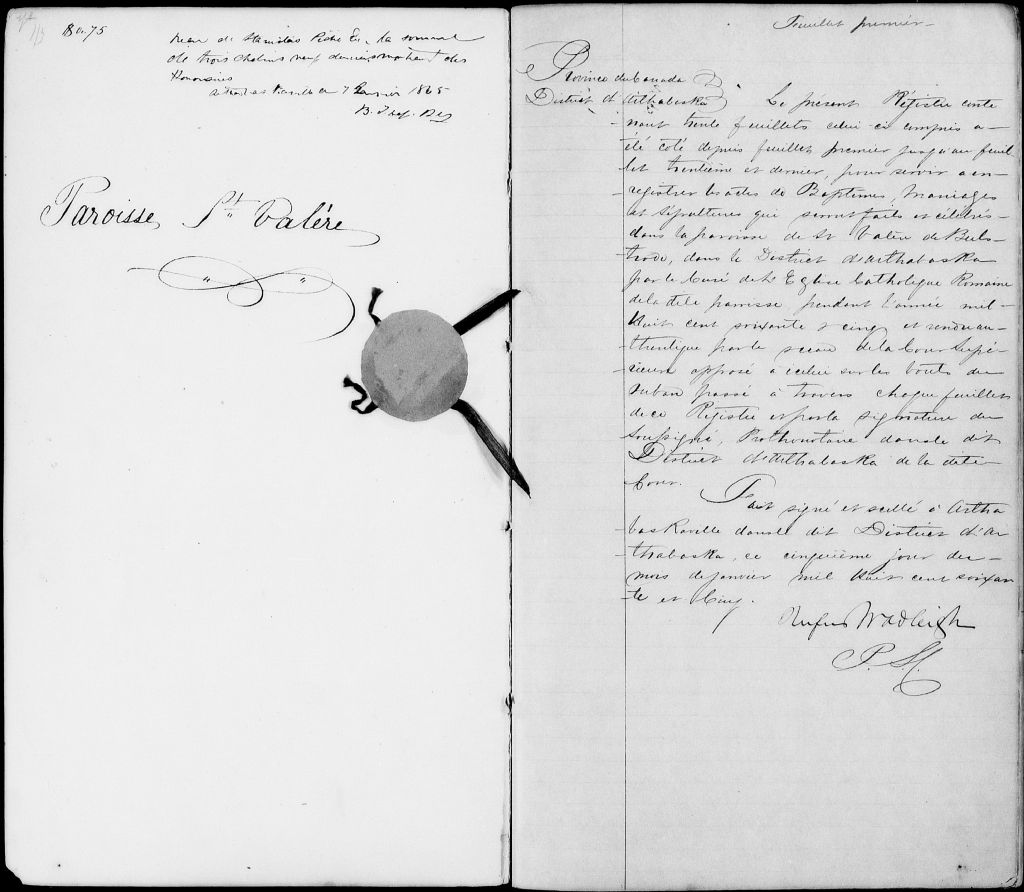 $0.75
de Stanislas Esr. la somme
de trois chelins neuf deniers montant des
Honoraires
Janvier 1865
Paroisse St. Valére
Feuillet premier
Province du Canada
District d'Arthabaska
Le présent Régistre conte
nant trente feuillets celui-ci compris a
été coté depuis feuillet premier jusqu'au feuil
let trentième et dernier, pour servir a en-
registrer les actes de Baptêmes, Mariages
et Sépultures qui seront faits et célébrés
dans la paroisse de St Valère de Buls-
trode, dans le District d'Arthabaska
par le Curé de l'Eglise Catholique Romaine
de la dite paroisse, pendant l'année mil
huit cent soixante & cinq et rendu au-
thentique par le sceau de la Cour Supé-
rieure apposé à celui sur les bouts du
ruban passé à travers chaque feuillets
de ce Régistre et par la signature du
Soussigné, Prothonotaire dans le dit
District d'Arthabaska de la dite
Cour.
Fait signé et scellé à Artha
baskaville dans le dit District d'Ar
thabaska, ce cinquième jour du
mois de janvier mil huit cent soixan
te et Cinq.
Rufus Wadleigh
P.S.C.